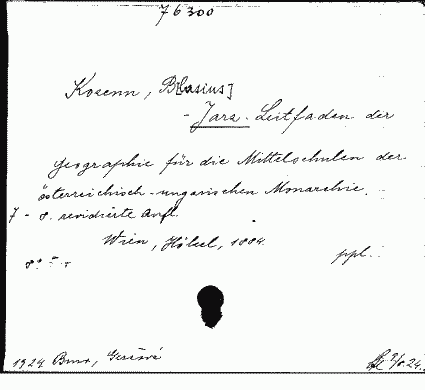 76300
Kozenn, B[lasius]
- Jarz. Leitfaden der
Geographie für die Mittelschulen der
österreichisch-ungarischen Monarchie.
7 - 8. revidierte Aufl.
Wien, Hölzel, 1884.
8°
ppl.
1924 Brno,
24.